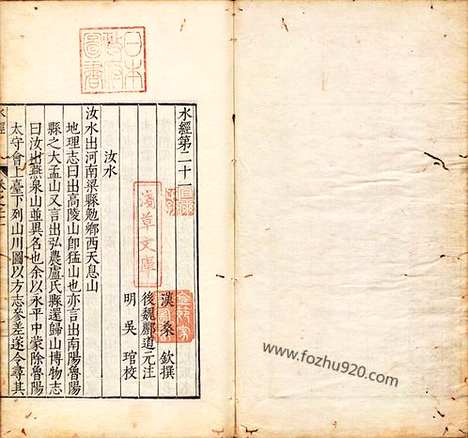 水經第二十一
漢桑欽撰
後魏酈道元注
明吳琯校
汝水
汝水出河南梁縣勉鄉西天息山
地理志曰出高陵山卽猛山也亦言出南陽魯陽
縣之大盂山又言出弘農盧氏縣還歸山博物志
曰汝出燕泉山並異名也余以永平中蒙除魯陽
太守會上臺下列山川圖以方志參差遂令尋其
水經
卷之二十一
日本
圖書
淺草文庫
www.fozhu920.com